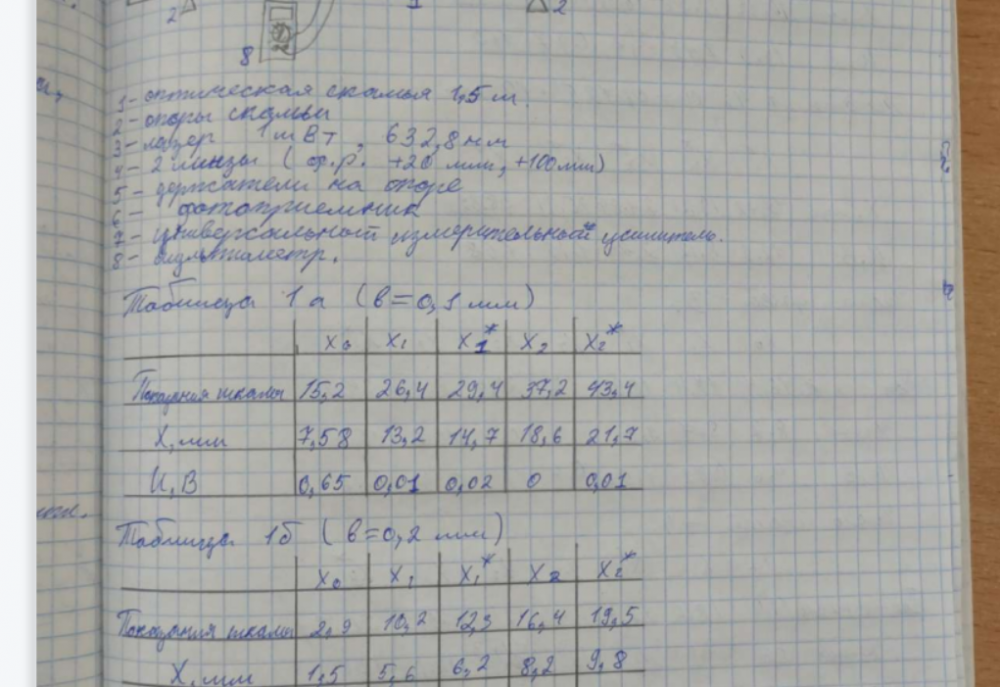 2
1
2
8
1- оптическая скамья 1,5 м.
2- опоры скамьи
3- лазер 1 мВт, 632,8 нм
4- 2 линзы (ф.р. +20 мм, +100 мм)
5- держатели на опоре
6- фотоприемник
7- универсальный измерительный усилитель.
8- мультиметр.
Таблица 1а (в=0,1 мм)
X₀ X₁ X₁* X₂ X₂*
Показания шкалы 15,2 26,4 29,4 37,2 43,4
X, мм 7,58 13,2 14,7 18,6 21,7
U, В 0,65 0,01 0,02 0 0,01
Таблица 1б (в=0,2 мм)
X₀ X₁ X₁* X₂ X₂*
Показания шкалы 2,9 10,2 12,3 16,4 19,5
X, мм 1,5 5,6 6,2 8,2 9,8